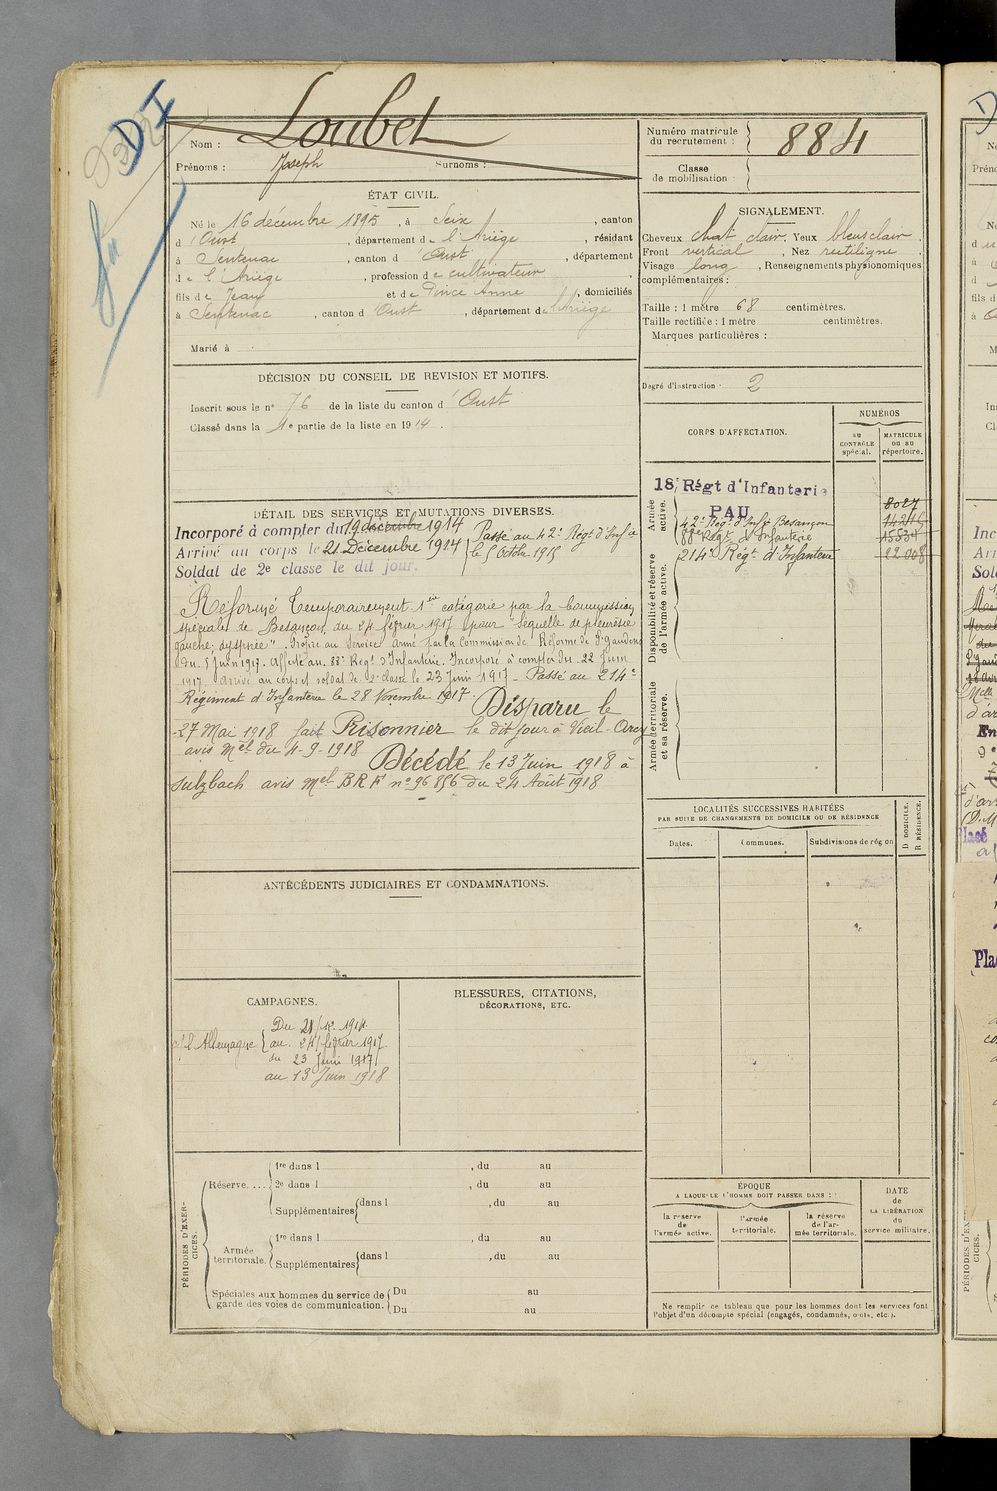 DI
Nom : Loubet
Prénoms : Joseph Surnoms :
Numéro matricule
du recrutement : 884
Classe
de mobilisation :
ÉTAT CIVIL.
Né le 16 décembre 1895, à Seix, canton
d'Oust, département de l'Ariège, résidant
à Sentenac, canton d'Oust, département
de l'Ariège, profession de cultivateur
fils de Jean et de Pince Anne, domiciliés
à Sentenac, canton d'Oust, département de l'Ariège
Marié à
SIGNALEMENT.
Cheveux chat clair. Yeux bleus clair.
Front vertical, Nez rectiligne
Visage long, Renseignements physionomiques
complémentaires :
Taille : 1 mètre 68 centimètres.
Taille rectifiée : 1 mètre centimètres.
Marques particulières :
Degré d'instruction : 2
DÉCISION DU CONSEIL DE REVISION ET MOTIFS.
Inscrit sous le n° 76 de la liste du canton d'Oust
Classé dans la 1e partie de la liste en 1914.
CORPS D'AFFECTATION.
NUMÉROS
AU CONTRÔLE spécial.
MATRICULE OU AU répertoire.
Armée active.
18e Régt d'Infanterie
PAU 8027
42e Régt d'Infie Besançon 14245
88e Régt d'Infanterie 15834
214e Régt d'Infanterie 22008
Disponibilité et réserve de l'armée active.
Armée territoriale et sa réserve.
DÉTAIL DES SERVICES ET MUTATIONS DIVERSES.
Incorporé à compter du 19 décembre 1914
Arrivé au corps le 21 Décembre 1914
Soldat de 2e classe le dit jour.
Passé au 42e Régt d'Infie
le 5 Octbre 1915
Réformé Temporairement 1ère catégorie par la Commission
spéciale de Besançon du 24 février 1917 pour "séquelle de pleurésie
gauche; dyspnée". Propre au Service Armé par la Commission de Réforme de St Gaudens
du 5 Juin 1917. Affecté au 88e Régt d'Infanterie. Incorporé à compter du 22 Juin
1917. Arrivé au corps et soldat de 2e classe le 23 Juin 1917. Passé au 214e
Régiment d'Infanterie le 28 Novembre 1917. Disparu le
27 Mai 1918 fait Prisonnier le dit jour à Vieil-Arcy
avis Mel du 4-9-1918 Décédé le 13 Juin 1918 à
Sulzbach avis Mel BRF n° 96856 du 24 Août 1918
LOCALITÉS SUCCESSIVES HABITÉES
PAR SUITE DE CHANGEMENTS DE DOMICILE OU DE RÉSIDENCE
Dates. Communes. Subdivisions de région D DOMICILE. R RÉSIDENCE.
ANTÉCÉDENTS JUDICIAIRES ET CONDAMNATIONS.
CAMPAGNES.
c/ l'Allemagne
Du 21 Xbre 1914
au 24 février 1917
du 23 Juin 1917
au 13 Juin 1918
BLESSURES, CITATIONS,
DÉCORATIONS, ETC.
PÉRIODES D'EXERCICES.
Réserve....
1re dans l , du au
2e dans l , du au
Supplémentaires dans l , du au
Armée territoriale.
1re dans l , du au
Supplémentaires dans l , du au
Spéciales aux hommes du service de garde des voies de communication.
Du au
Du au
ÉPOQUE
A LAQUELLE L'HOMME DOIT PASSER DANS :
la réserve de l'armée active.
l'armée territoriale.
la réserve de l'armée territoriale.
DATE
de
LA LIBÉRATION
du
service militaire.
Ne remplir ce tableau que pour les hommes dont les services font
l'objet d'un décompte spécial (engagés, condamnés, omis, etc.).